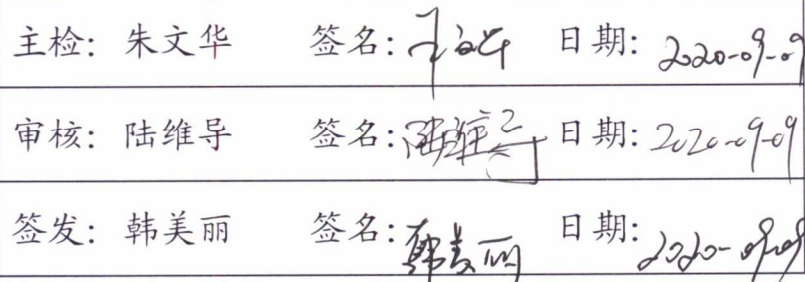 主检: 朱文华 签名: 朱文华 日期: 2020-09-09
审核: 陆维导 签名: 陆维导 日期: 2020-09-09
签发: 韩美丽 签名: 韩美丽 日期: 2020-09-09